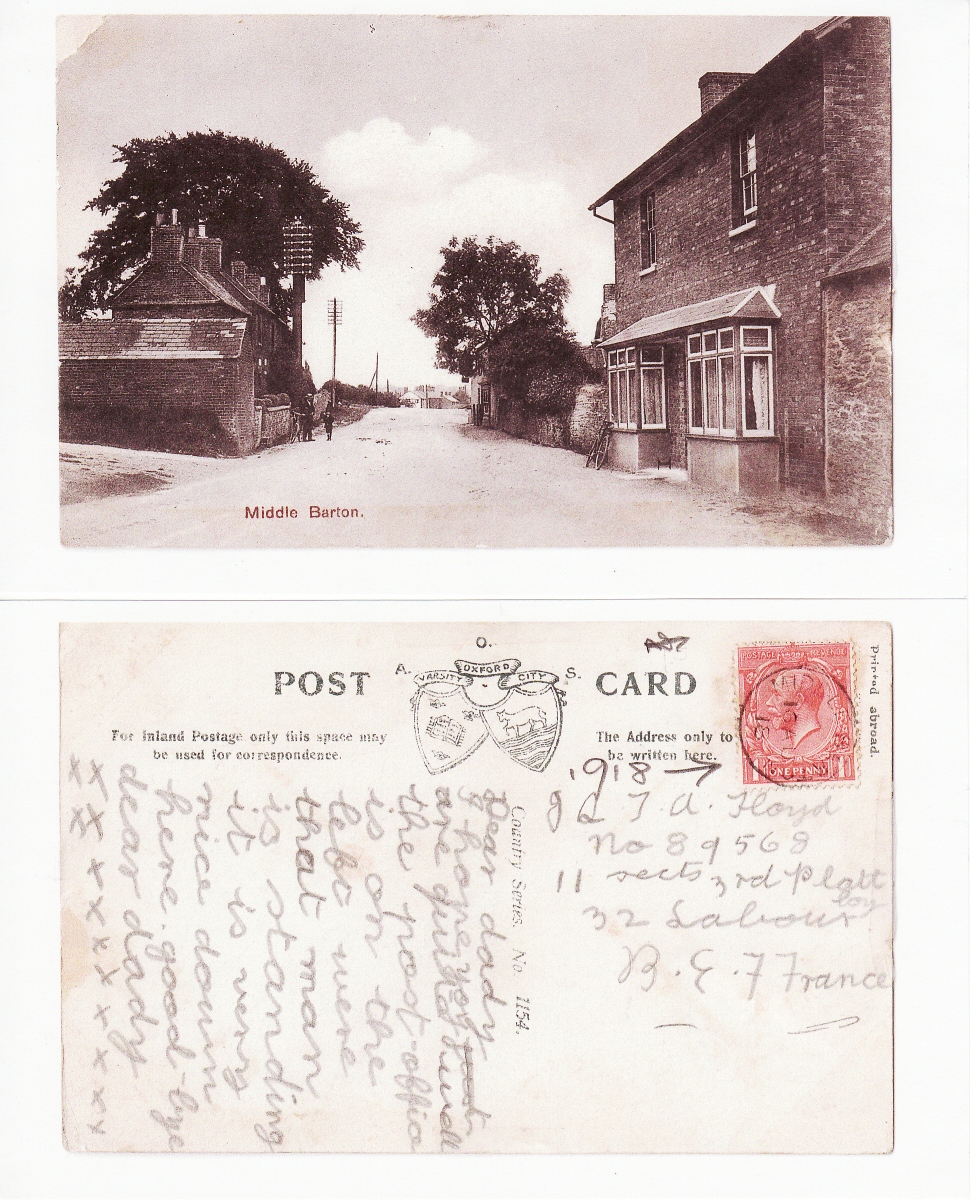 Middle Barton.
POST CARD
A. O. S.
VARSITY OXFORD CITY
Printed abroad.
For Inland Postage only this space may
be used for correspondence.
The Address only to
be written here.
POSTAGE REVENUE
ONE PENNY
1918 →
T. A. Floyd
No 89568
11 sects 3rd Platt
Coy
32 Labour
B. E. F France
Country Series. No. 1154.
Dear dady
I hope you
are quite well
the post-office
is on the
left were
that man
is standing
it is very
nice down
here. good-bye
dear dady
x x x x x x x x x x
x x x